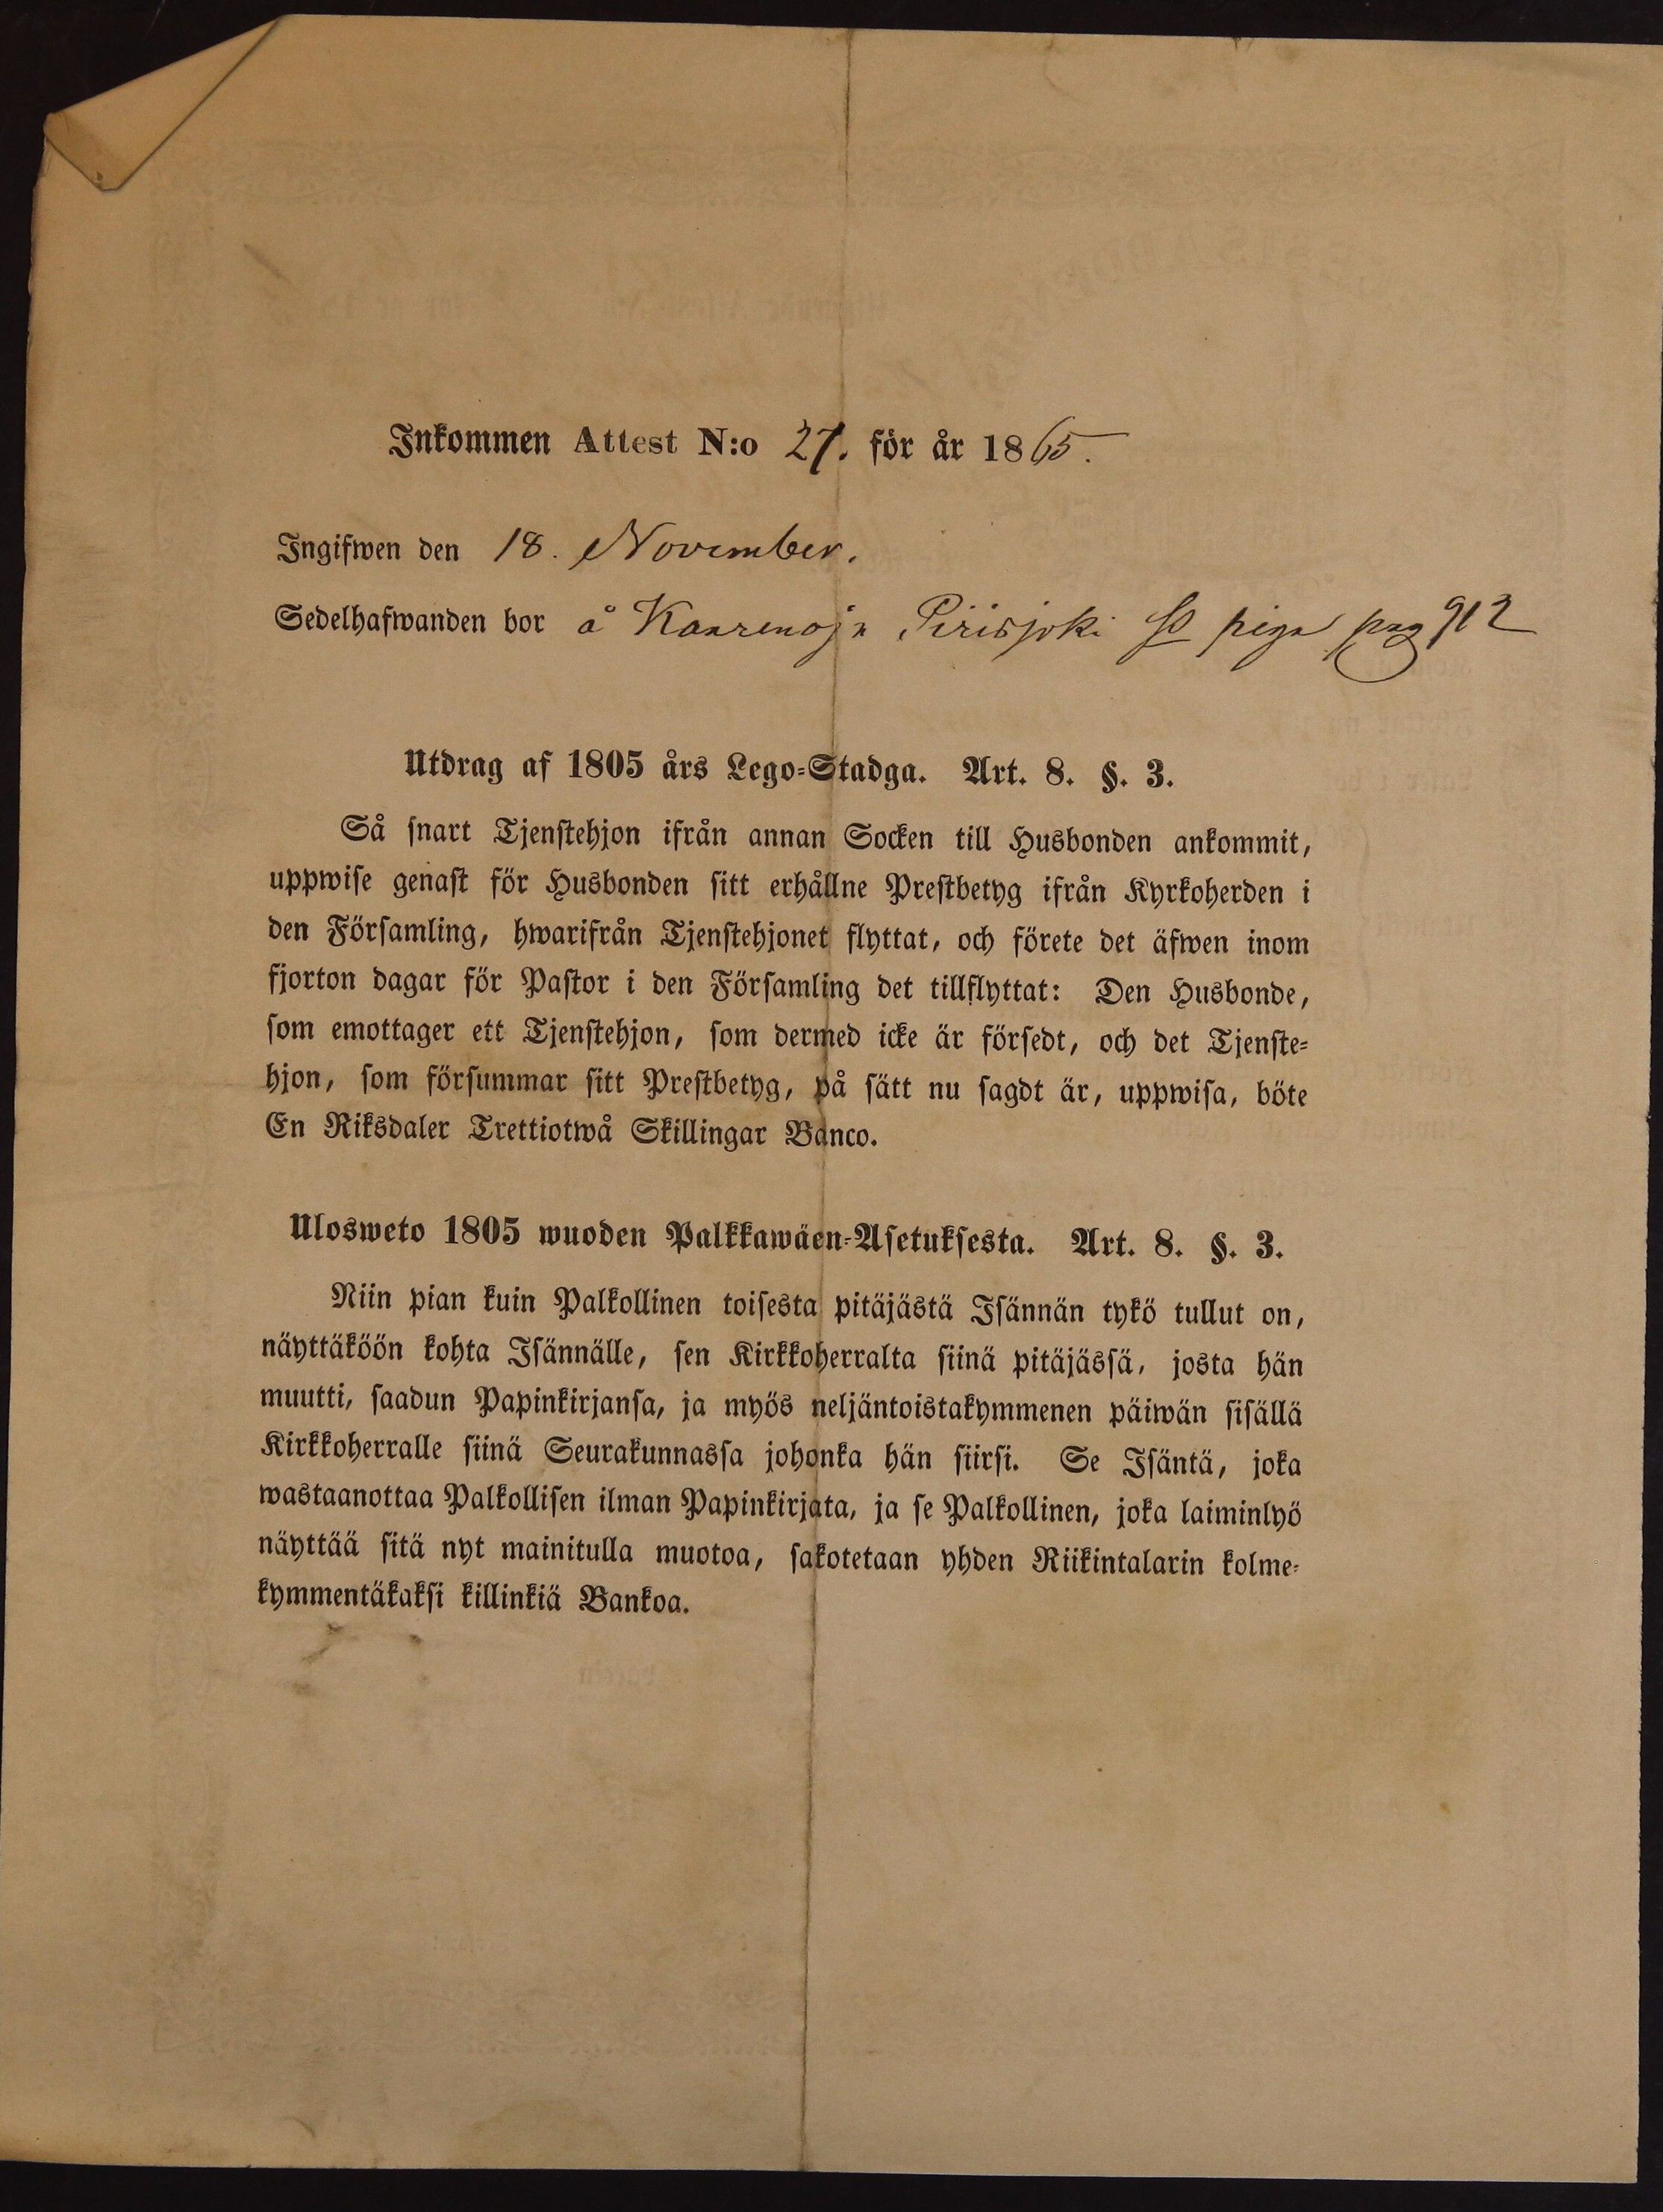 Inkommen Attest N:o 27. för år 1865.
Ingifwen den 18. November.
Sedelhafwanden bor å Kaarenoja Piiisjoki so piga pag 912
Utdrag af 1805 års Lego-Stadga. Art. 8. §. 3.
Så snart Tjenstehjon ifrån annan Socken till Husbonden ankommit,
uppwise genast för Husbonden sitt erhållne Prestbetyg ifrån Kyrkoherden i
den Församling, hwarifrån Tjenstehjonet flyttat, och förete det äfwen inom
fjorton dagar för Pastor i den Församling det tillflyttat: Den Husbonde,
som emottager ett Tjenstehjon, som dermed icke är försedt, och det Tjenste-
hjon, som försummar sitt Prestbetyg, på sätt nu sagdt är, uppwisa, böte
En Riksdaler Trettiotwå Skillingar Banco.
Ulosweto 1805 wuoden Palkkawäen-Asetuksesta. Art. 8. §. 3.
Niin pian kuin Palkollinen toisesta pitäjästä Isännän tykö tullut on,
näyttäköön kohta Isännälle, sen Kirkkoherralta siinä pitäjässä, josta hän
muutti, saadun Papinkirjansa, ja myös neljäntoistakymmenen päiwän sisällä
Kirkkoherralle siinä Seurakunnassa johonka hän siirsi. Se Isäntä, joka
wastaanottaa Palkollisen ilman Papinkirjata, ja se Palkollinen, joka laiminlyö
näyttää sitä nyt mainitulla muotoa, sakotetaan yhden Riikintalarin kolme-
kymmentäkaksi killinkiä Bankoa.